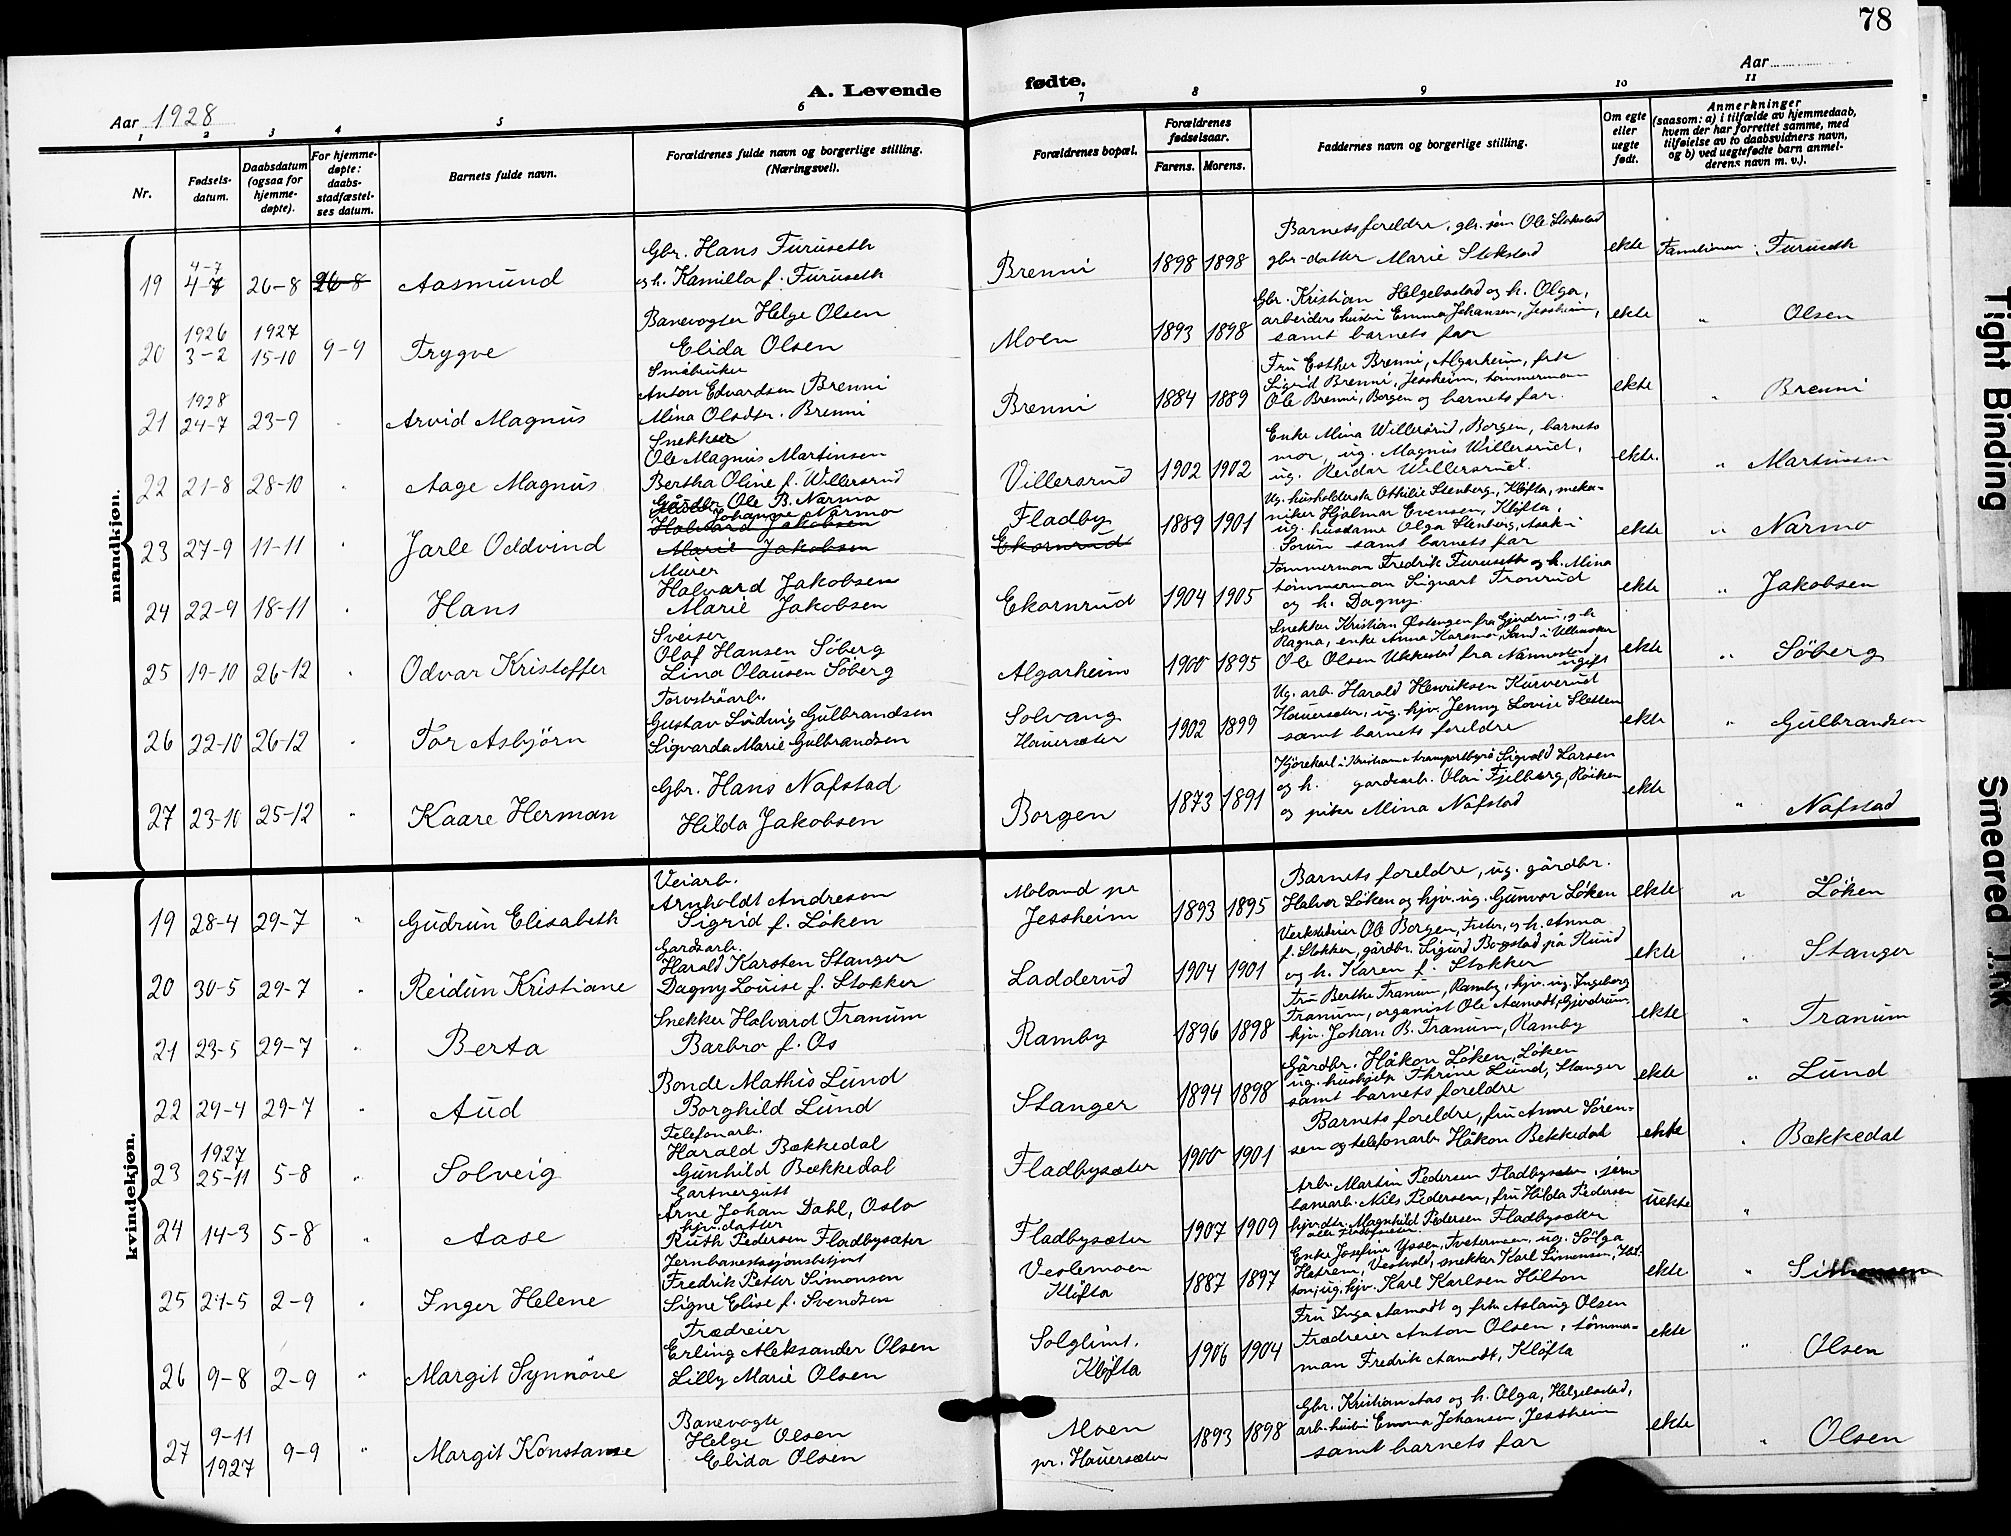 78
A. Levende fødte.
Aar 1928
Aar
1 2 3 4 5 6 7 8 9 10 11
Nr.
Fødsels-
datum.
Daabsdatum
(ogsaa for
hjemme-
døpte).
For hjemme-
døpte:
daabs-
stadfæstel-
ses datum.
Barnets fulde navn.
Forældrenes fulde navn og borgerlige stilling.
(Næringsvei).
Forældrenes bopæl.
Forældrenes
fødselsaar.
Farens. Morens.
Faddernes navn og borgerlige stilling.
Om egte
eller
uegte
født.
Anmerkninger
(saasom: a) i tilfælde av hjemmedaab,
hvem der har forrettet samme, med
tilføielse av to daabsvidners navn,
og b) ved uegtefødte barn anmel-
derens navn m. v.).
mandkjøn.
19 4-7 4-7 26-8 26-8 Aasmund
Gbr. Hans Furuseth
og h. Kamilla f. Furuseth
Brenni 1898 1898
Barnets foreldre, gbr. søn Ole Stokstad
gbr-datter Marie Stokstad
ekte Familienavn: Furuseth
20 1926 3-2 1927 15-10 9-9 Trygve
Banevogter Helge Olsen
Elida Olsen
Moen 1893 1898
Gbr. Kristian Helgebostad og h. Olga,
arbeiders hustru Emma Johansen, Jessheim,
samt barnets far
ekte " Olsen
21 1928 24-7 23-9 Arvid Magnus
Småbruker
Anton Edvardsen Brenni
Mina Olsdtr. Brenni
Brenni 1884 1889
Fru Esther Brenni, Algarheim, frk
Sigrid Brenni, Jessheim, tømmermann
Ole Brenni, Borgen og barnets far.
ekte " Brenni
22 21-8 28-10 Aage Magnus
Snekker
Ole Magnus Martinsen
Bertha Oline f. Willersrud
Villersrud 1902 1902
Enke Mina Willersrud, Borgen, barnets
mor, ug. Magnus Willersrud,
ug. Reidar Willersrud.
ekte. " Martinsen
23 27-9 11-11 Jarle Oddvind
Gårdbr. Ole B. Narmo
Johanne Narmo
Halvard Jakobsen
Marie Jakobsen
Fladby
Ekornrud
1889 1901
Ug. husholderske Othilie Stenberg, Kløfta, meka-
niker Hjalmar Evensen, Kløfta,
ug. husdame Olga Stenberg, Asak i
Sørum samt barnets far
ekte " Narmo
24 22-9 18-11 Hans
Murer
Halvard Jakobsen
Marie Jakobsen
Ekornrud 1904 1905
Tømmerman Fredrik Furuseth og h. Mina
tømmerman Sigvart Tronrud
og h. Dagny.
ekte " Jakobsen
25 19-10 26-12 Odvar Kristoffer
Sveiser
Olaf Hansen Söberg
Lina Olausen Söberg
Algarheim 1900 1895
Snekker Kristian Østengen fra Gjerdrum, og h.
Ragna, enke Anna Karsmo, Sand i Ullensaker
Ole Olsen Ukkestad fra Nannestad
ugift
ekte " Söberg
26 22-10 26-12 Tor Asbjörn
Torvströarb.
Gustav Ludvig Gulbrandsen
Sigvarda Marie Gulbrandsen
Solvang
Hauersæter
1902 1899
Ug. arb. Harald Henriksen Kurverud
Hauersæter, ug. hjv. Jenny Lovise Sletten
samt barnets foreldre
ekte " Gulbrandsen
27 23-10 25-12 " Kaare Herman
Gbr. Hans Nafstad
Hilda Jakobsen
Borgen 1873 1891
Kjørekarl i Kristiania transportbyrå Sigvald Larsen
og h. gardsarb. Olav Fjelberg, Röiken
og pike Mina Nafstad
ekte " Nafstad
kvindekjøn.
19 28-4 29-7 " Gudrun Elisabeth
Veiarb.
Arnholdt Andresen
Sigrid f. Løken
Moland pr
Jessheim
1893 1895
Barnets foreldre, ug. gårdbr.
Halvor Løken og hjv. ug. Gunvor Løken
ekte " Løken
20 30-5 29-7 Reidun Kristiane
Gardsarb.
Harald Karsten Stanger
Dagny Louise f. Stokker
Ladderud 1904 1901
Verkseier Ole Borgen, Fieler, og h. Anna
f. Stokker, gårdbr. Sigurd Bogstad på Ruud
og h. Karen f. Stokker
ekte Stanger
21 23-5 29-7 Berta
Snekker Halvard Tranum
Barbro f. Os
Ramby 1896 1898
Fru Berthe Tranum, Ramby, hjv. ug. Ingeborg
Tranum, organist Ole Aamodt, Gjerdrum,
hjv. Johan B. Tranum, Ramby
ekte " Tranum
22 29-4 29-7 " Aud
Bonde Mathis Lund
Borghild Lund
Stanger 1894 1898
Gårdbr. Håkon Løken, Løken
ug. hushjelp Thrine Lund, Stanger
samt barnets foreldre
ekte " Lund
23 1927 25-11 5-8 " Solveig
Telefonarb.
Harald Bækkedal
Gunhild Bækkedal
Fladbysæter 1900 1901
Barnets foreldre, fru Anne Sören-
sen og telefonarb. Håkon Bekkedal
ekte " Bækkedal
24 14-3 5-8 " Aase
Gartnergutt
Arne Johan Dahl, Oslo
hjv. datter
Ruth Pedersen Fladbysæter
Fladbysæter 1907 1909
Arb. Martin Pedersen Fladbysæter, jern-
banearb. Nils Pedersen, fru Hilda Pedersen
hjv. dtr. Magnhild Pedersen Fladbysæter
alle Fladbysæter
uekte "
25 21-5 2-9 Inger Helene
Jernbanestasjonsbetjent
Fredrik Petter Simonsen
Signe Elise f. Svendsen
Veslemoen
Kløfta
1887 1897
Enke Josefine Yssen, Tvetermoen, ug. Solga
Hetrem, Vestvold, snekker Karl Simonsen, Hil-
ton, ug. hjv. Karl Karlsen Hilton
ekte " Simonsen
26 9-8 2-9 " Margit Synnöve
Trædreier
Erling Aleksander Olsen
Lilly Marie Olsen
Solglimt.
Kløfta
1906 1904
Fru Inga Aamodt og frk. Aslaug Olsen
Trædreier Anton Olsen, tömmer-
man Fredrik Aamodt, Kløfta
ekte " Olsen
27 9-11 1927 9-9 " Margit Konstanse
Banevogter
Helge Olsen
Elida Olsen
Moen
pr. Hauersæter
1893 1898
Gbr. Kristian Aas og h. Olga, Helgebostad,
arb. hustru Emma Johansen, Jessheim
samt barnets far
ekte " Olsen
Tight Binding
Smeared Ink